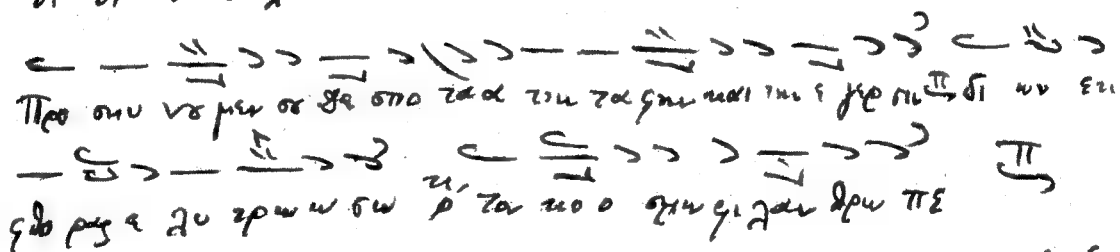 Προ σκυ νȣ μεν σȣ δε σπο τα α την τα φην και την ε γερ σιν π δι ων εκ
φθο ρας ε λυ τρω ω σω τον κο ο σμον φι λαν θρω πε π